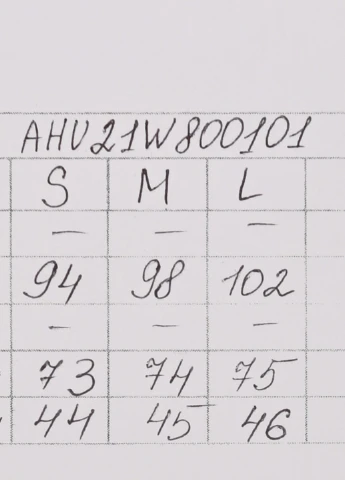 AHU21W800101
S M L
— — —
94 98 102
- — —
73 74 75
44 45 46